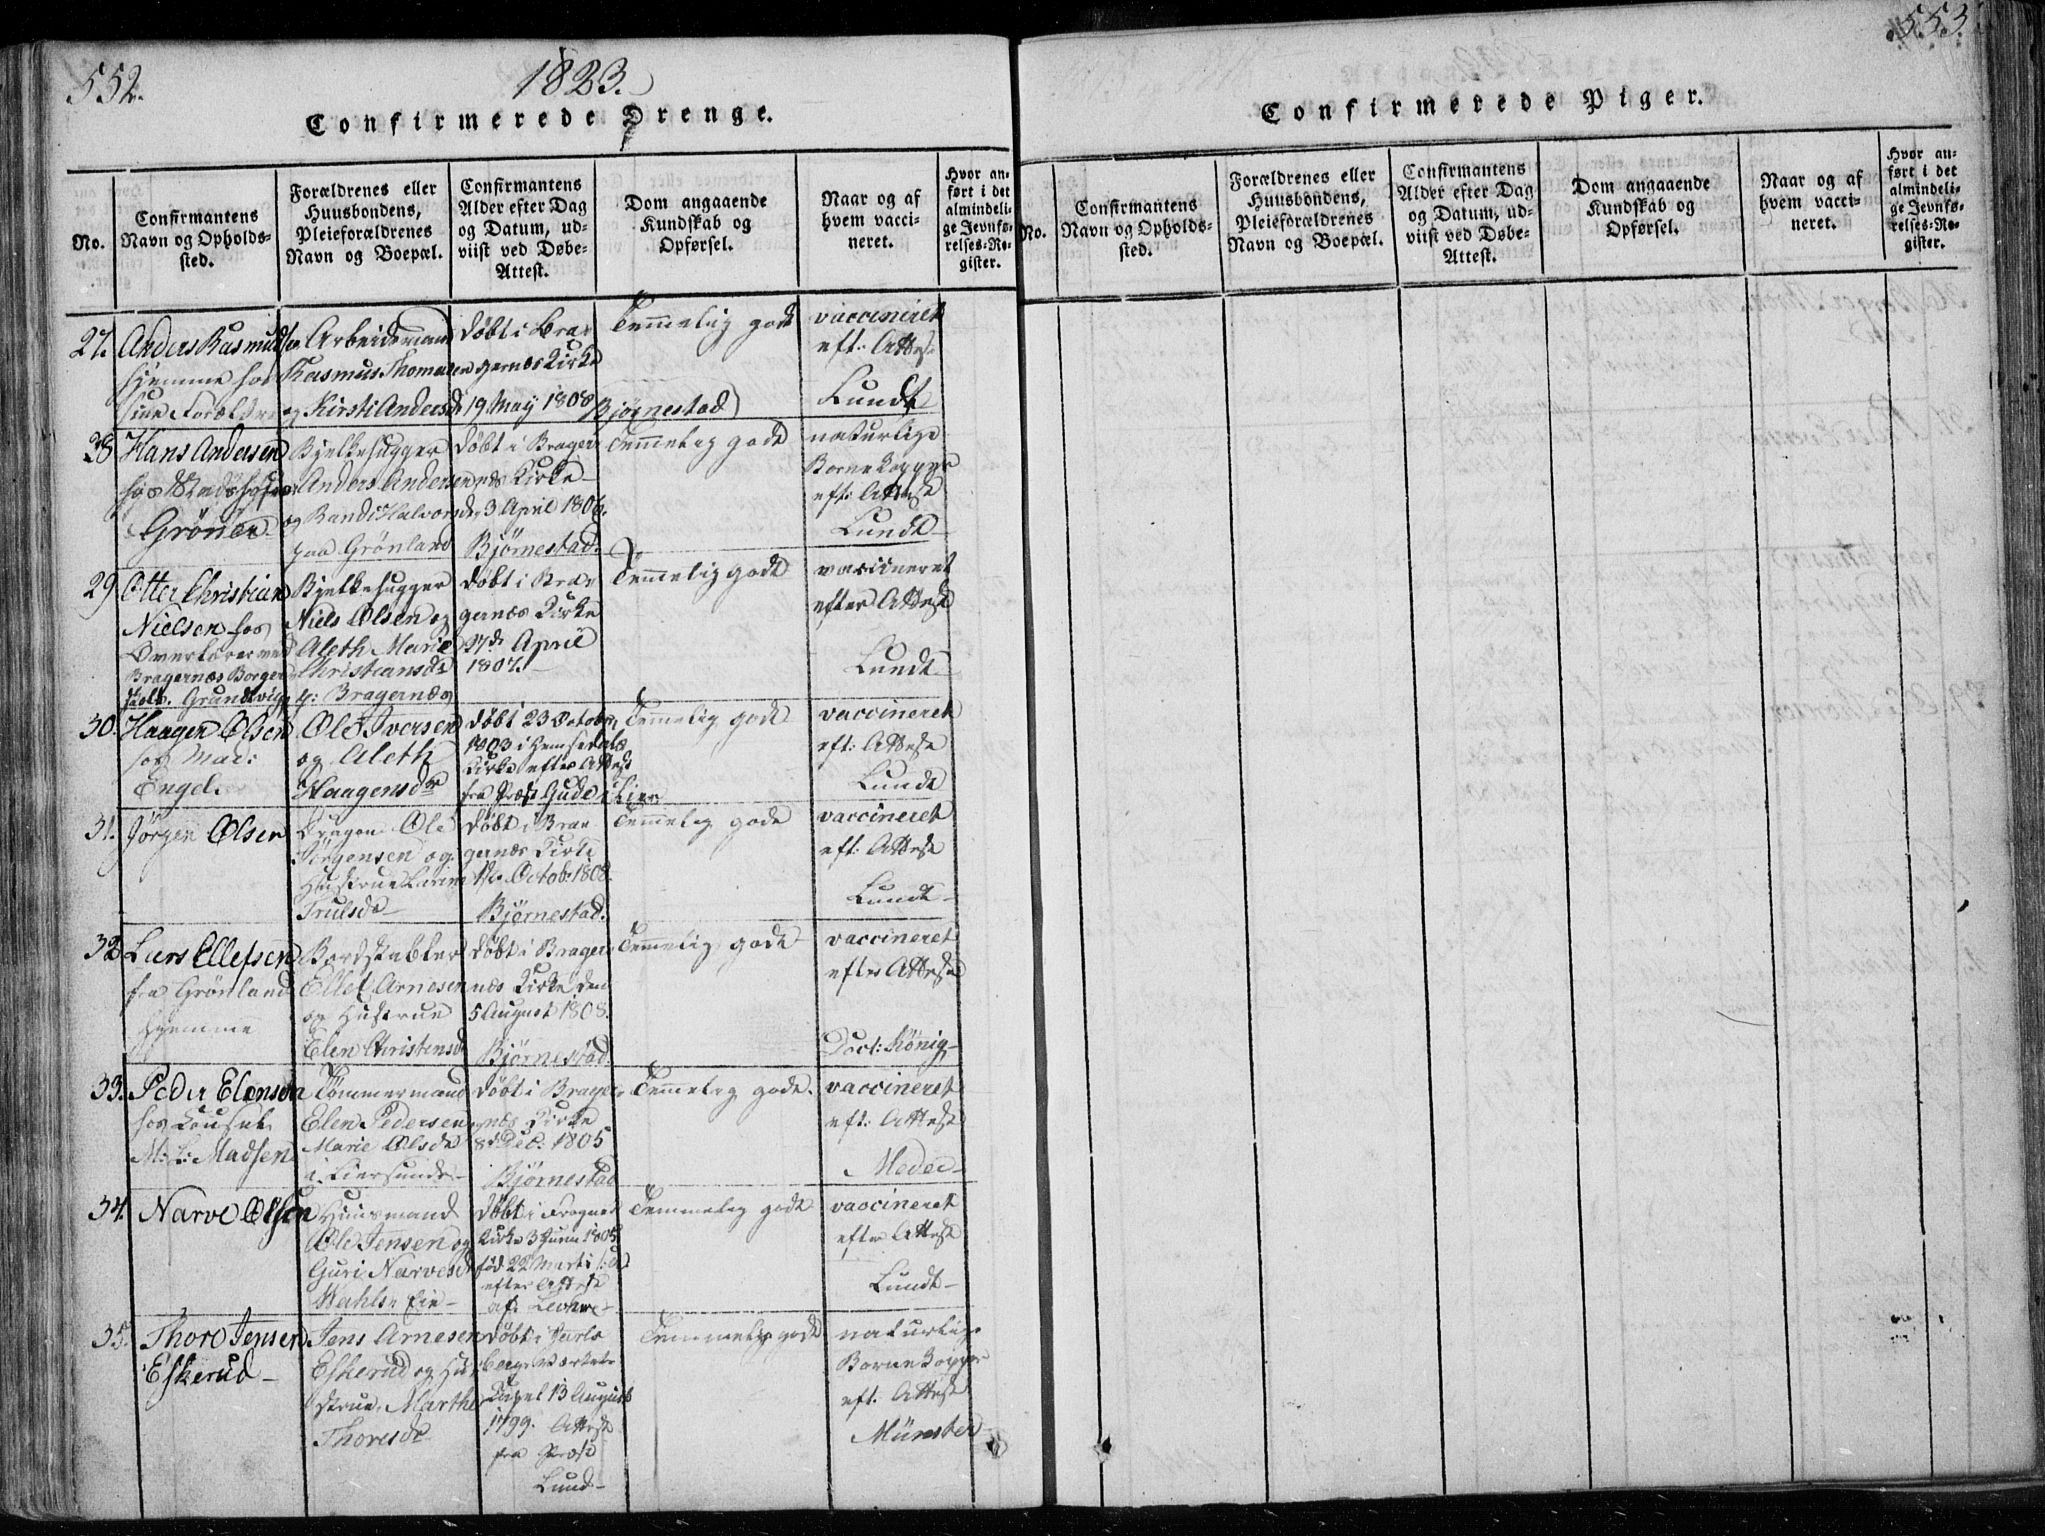 552.
1823.
Confirmerede Drenge.
No.
Confirmantens
Navn og Opholds-
sted.
Forældrenes eller
Huusbondens,
Pleieforældrenes
Navn og Boepæl.
Confirmantens
Alder efter Dag
og Datum, ud-
viist ved Døbe-
Attest.
Dom angaaende
Kundskab og
Opførsel.
Naar og af
hvem vacci-
neret.
Hvor an-
ført i det
almindeli-
ge Jevnfø-
relses-Re-
gister.
27.
Anders Rasmudsen
hjemme hos
sine Forældre
Arbeidsmand
Rasmus Thomesen
og Kirsti Andersd
døbt i Bra-
gernæs Kirke
19 May 1808
Bjørnestad
Temmelig godt
vaccineret
eft: Attest
Lundt
28
Hans Andersen
hos
Grøner
Bjelkehugger
Anders Andersen
og Randi Halvorsdr
paa Grønland
døbt i Brager-
næs Kirke
3 April 1806.
Bjørnestad.
Temmelig godt
naturlige
Børnekopper
eft: Attest
Lundt
29
Otter Christian
Nielsen hos
Overlærer ved
Bragernæs Borger
skole. Grundtvig
Bjelkehugger
Niels Olsen og
Aleth Marie
Christiansdr
p: Bragernæs
døbt i Bra-
gernæs Kirke
27de April
1807.
Temmelig godt
vaccineret
efter Attest
Lundt
30.
Haagen Olsen
hos Mad:
Engel.
Ole Iversen
og Aleth
Haagensdr
døbt 23 October
1803 i Hemsedals
Kirke efter Attest
fra Præst Gude i Lier
Temmelig godt
vaccineret
eft: Attest
Lundt
31.
Jørgen Olsen
Ole
Jørgensen og
Hustrue Karen
Trulsdr
døbt i Bra-
gernæs Kirke
Octob: 1808.
Bjørnestad.
Temmelig godt
vaccineret
eft: Attest
Lundt
32
Lars Ellefsen
fra Grønland
hjemme
Bordstabler
Ellef Arnesen
og Hustrue
Elen Christensd
døbt i Brager-
næs Kirke den
5 August 1808.
Bjørnestad.
Temmelig godt
vaccineret
efter Attest
Doct: König
33.
Peder Elensen
hos Consul
M: L: Madsen
Tømmermand
Elen Pedersen
Marie Olsdr
i Liersund
døbt i Brager-
næs Kirke
8d Dec: 1805
Bjørnestad
Temmelig godt.
vaccineret
eft: Attest
Meder
34.
Narve Olsen
Huusmand
Ole Jensen og
Guri Narvesd
Wahls Eie
døbt i Frogner
Kirke 3 Junii 1805
fød 22 Marti s: A:
efter Attest
af
Temmelig godt
vaccineret
efter Attest
Lundt
35.
Thore Jensen
Eskerud
Jens Arnesen
Eskerud og Hu-
strue Marthe
Thoresdr
døbt i Jarls-
berg Værkets
Capel 13 August
1799. Attest
fra Præst
Lund
Temmelig godt
naturlige
Børnekopper
eft. Attest
Münster
553.
Confirmerede Piger.
No.
Confirmantens
Navn og Opholds-
sted.
Forældrenes eller
Huusbondens,
Pleieforældrenes
Navn og Boepæl.
Confirmantens
Alder efter Dag
og Datum, ud-
viist ved Døbe-
Attest.
Dom angaaende
Kundskab og
Opførsel.
Naar og af
hvem vacci-
neret.
Hvor an-
ført i det
almindeli-
ge Jevnfø-
relses-Re-
gister.